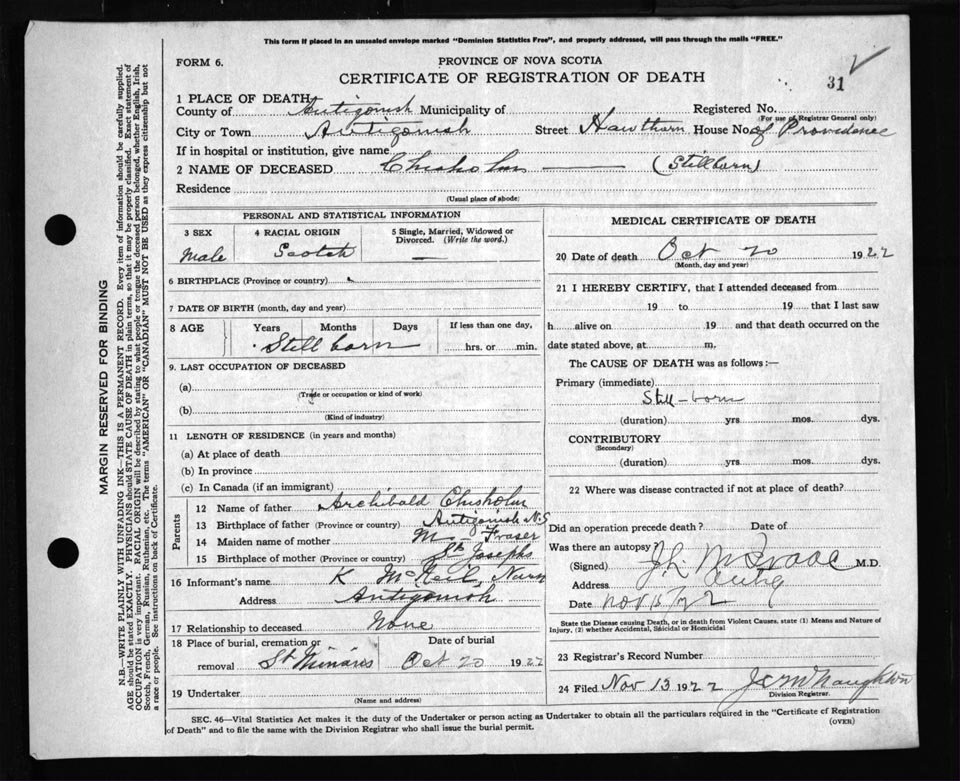 This form if placed in an unsealed envelope marked "Dominion Statistics Free", and properly addressed, will pass through the mails "FREE."
FORM 6.
PROVINCE OF NOVA SCOTIA
CERTIFICATE OF REGISTRATION OF DEATH
31
1 PLACE OF DEATH
County of Antigonish Municipality of Registered No.
(For use of Registrar General only)
City or Town Antigonish Street Hawthorn House No. of Providence
If in hospital or institution, give name
2 NAME OF DECEASED Chisholm — (Stillborn)
Residence
(Usual place of abode)
PERSONAL AND STATISTICAL INFORMATION
3 SEX 4 RACIAL ORIGIN 5 Single, Married, Widowed or Divorced. (Write the word.)
Male Scotch —
6 BIRTHPLACE (Province or country)
7 DATE OF BIRTH (month, day and year)
8 AGE Years Months Days If less than one day,
Still born hrs. or min.
9. LAST OCCUPATION OF DECEASED
(a)
(Trade or occupation or kind of work)
(b)
(Kind of industry)
11 LENGTH OF RESIDENCE (in years and months)
(a) At place of death
(b) In province
(c) In Canada (if an immigrant)
Parents
12 Name of father Archibald Chisholm
13 Birthplace of father (Province or country) Antigonish N.S
14 Maiden name of mother M— Fraser
15 Birthplace of mother (Province or country) St Josephs
16 Informant's name K McNeil, Nurse
Address Antigonish
17 Relationship to deceased None
18 Place of burial, cremation or removal St Ninians Date of burial Oct 20 1922
19 Undertaker
(Name and address)
MEDICAL CERTIFICATE OF DEATH
20 Date of death Oct 20 1922
(Month, day and year)
21 I HEREBY CERTIFY, that I attended deceased from
19 to 19 that I last saw
h alive on 19 and that death occurred on the
date stated above, at m.
The CAUSE OF DEATH was as follows:—
Primary (immediate)
Still-born
(duration) yrs mos. dys.
CONTRIBUTORY
(Secondary)
(duration) yrs mos. dys.
22 Where was disease contracted if not at place of death?
Did an operation precede death? Date of
Was there an autopsy?
(Signed) M.D.
Address Antig
Date Nov 15/22
State the Disease causing Death, or in death from Violent Causes, state (1) Means and Nature of Injury, (2) whether Accidental, Suicidal or Homicidal
23 Registrar's Record Number
24 Filed Nov 13 1922
Division Registrar.
SEC. 46—Vital Statistics Act makes it the duty of the Undertaker or person acting as Undertaker to obtain all the particulars required in the "Certificate of Registration
of Death" and to file the same with the Division Registrar who shall issue the burial permit.
(OVER)
MARGIN RESERVED FOR BINDING
N.B.—WRITE PLAINLY WITH UNFADING INK—THIS IS A PERMANENT RECORD. Every item of information should be carefully supplied.
AGE should be stated EXACTLY. PHYSICIANS should STATE CAUSE OF DEATH in plain terms, so that it may be properly classified. Exact statement of
OCCUPATION is very important. RACIAL ORIGIN will be described by stating to what people or tongue the deceased person belonged, whether English, Irish,
Scotch, French, German, Russian, Ruthenian, etc. The terms "AMERICAN" OR "CANADIAN" MUST NOT BE USED as they express citizenship but not
a race or people. See instructions on back of Certificate.